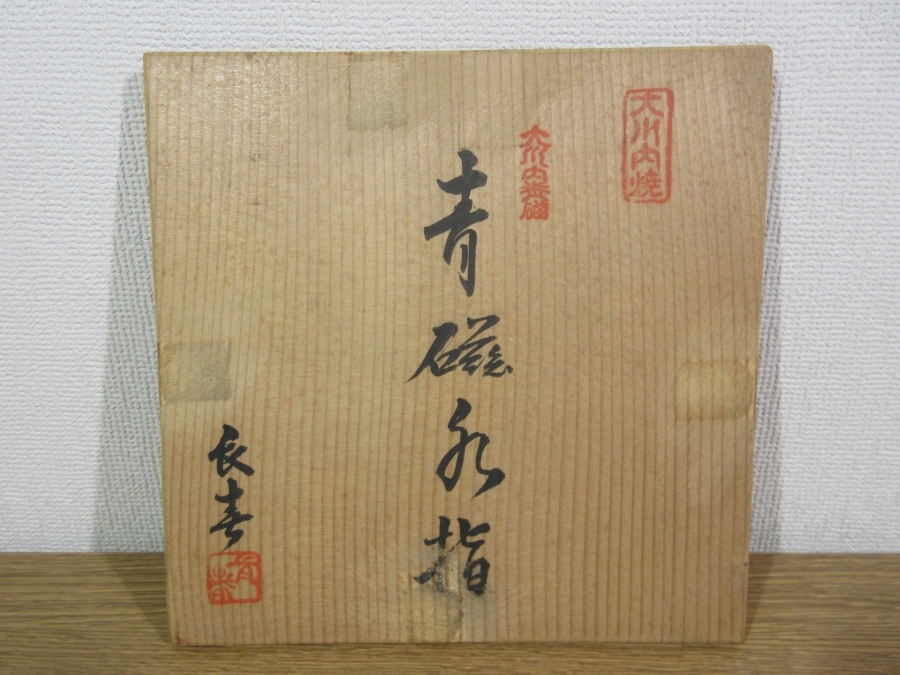 大川内焼
大川内青磁
青磁水指
長春
長春